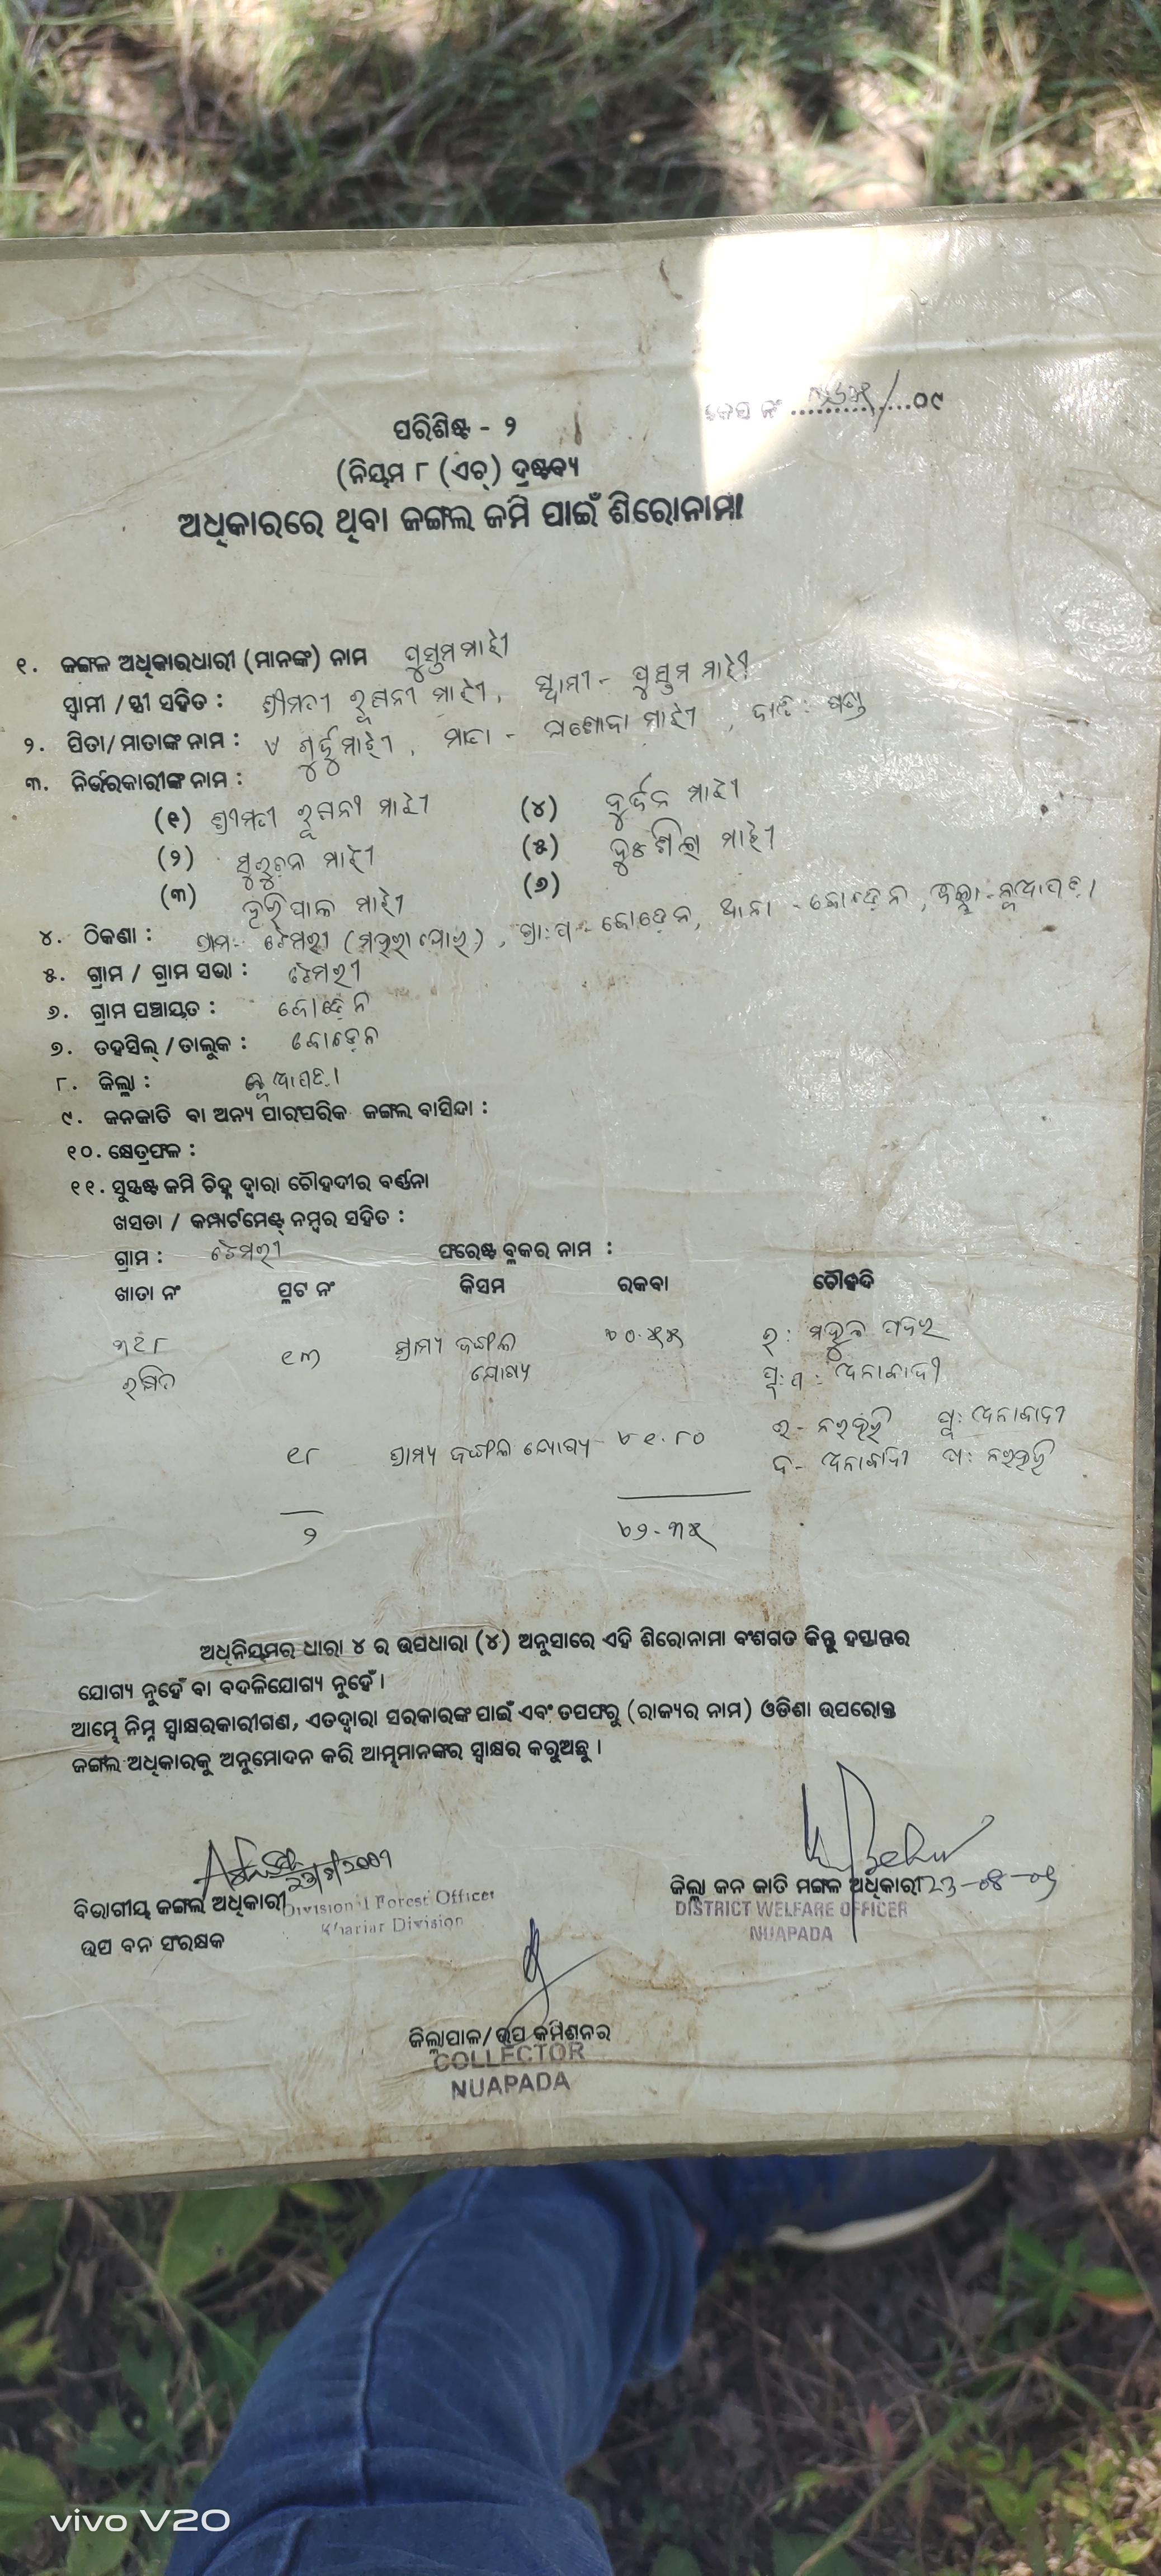 କେସ ନଂ ............./୦୯
ପରିଶିଷ୍ଟ - ୨
(ନିୟମ ୮ (ଏଚ୍) ଦ୍ରଷ୍ଟବ୍ୟ
ଅଧିକାରରେ ଥିବା ଜଙ୍ଗଲ ଜମି ପାଇଁ ଶିରୋନାମା
୧. ଜଙ୍ଗଳ ଅଧିକାରଧାରୀ (ମାନଙ୍କ) ନାମ ପୁସ୍ତମ ମାଝୀ
ସ୍ଵାମୀ / ସ୍ତ୍ରୀ ସହିତ : ଶ୍ରୀମତୀ ମାଝୀ, ସ୍ଵାମୀ - ପୁସ୍ତମ ମାଝୀ
୨. ପିତା/ମାତାଙ୍କ ନାମ : ମାଝୀ, ମାତା - ମାଝୀ, ଜାତି :
୩. ନିର୍ଭରକାରୀଙ୍କ ନାମ :
(୧) ଶ୍ରୀମତୀ ମାଝୀ (୪) ଦୁର୍ଜନ ମାଝୀ
(୨) ମାଝୀ (୫) ମାଝୀ
(୩) ହରିପାଲ ମାଝୀ (୬)
୪. ଠିକଣା : ଗ୍ରାମ- ଟେମରୀ, ଗ୍ରା:ପ - ବୋଡ଼େନ, ଥାନା - ବୋଡ଼େନ, ଜିଲ୍ଲା - ନୂଆପଡ଼ା
୫. ଗ୍ରାମ / ଗ୍ରାମ ସଭା : ଟେମରୀ
୬. ଗ୍ରାମ ପଞ୍ଚାୟତ : ବୋଡ଼େନ
୭. ତହସିଲ୍ / ତାଲୁକ : ବୋଡ଼େନ
୮. ଜିଲ୍ଲା : ନୂଆପଡ଼ା
୯. ଜନଜାତି ବା ଅନ୍ୟ ପାରଂପରିକ ଜଙ୍ଗଲ ବାସିନ୍ଦା :
୧୦. କ୍ଷେତ୍ରଫଳ :
୧୧. ସୁସ୍ପଷ୍ଟ ଜମି ଚିହ୍ନ ଦ୍ଵାରା ଚୌହଦୀର ବର୍ଣ୍ଣନା
ଖସଡା / କମ୍ପାର୍ଟମେଣ୍ଟ୍ ନମ୍ବର ସହିତ :
ଗ୍ରାମ : ଟେମରୀ ଫରେଷ୍ଟ ବ୍ଲକର ନାମ :
ଖାତା ନଂ ପ୍ଲଟ ନଂ କିସମ ରକବା ଚୌହଦି
ରକ୍ଷିତ ୧୩ ଗ୍ରାମ୍ୟ ଜଙ୍ଗଲ ଯୋଗ୍ୟ ୦.୫୫
ପ: ଅନାବାଦୀ
୧୮ ଗ୍ରାମ୍ୟ ଜଙ୍ଗଲ ଯୋଗ୍ୟ ୧.୮୦ ଉ- ନରହରି ପୂ: ଅନାବାଦୀ
ଦ- ଅନାବାଦୀ ପ: ନରହରି
୨ ୨.୩୫
ଅଧିନିୟମର ଧାରା ୪ ର ଉପଧାରା (୪) ଅନୁସାରେ ଏହି ଶିରୋନାମା ବଂଶଗତ କିନ୍ତୁ ହସ୍ତାନ୍ତର
ଯୋଗ୍ୟ ନୁହେଁ ବା ବଦଳିଯୋଗ୍ୟ ନୁହେଁ ।
ଆମ୍ଭେ ନିମ୍ନ ସ୍ଵାକ୍ଷରକାରୀଗଣ, ଏତଦ୍ଵାରା ସରକାରଙ୍କ ପାଇଁ ଏବଂ ତପଫରୁ (ରାଜ୍ୟର ନାମ) ଓଡିଶା ଉପରୋକ୍ତ
ଜଙ୍ଗଲ ଅଧିକାରକୁ ଅନୁମୋଦନ କରି ଆମ୍ଭମାନଙ୍କର ସ୍ଵାକ୍ଷର କରୁଅଛୁ ।
ବିଭାଗୀୟ ଜଙ୍ଗଲ ଅଧିକାରୀ
Divisional Forest Officer
Khariar Division
ଉପ ବନ ସଂରକ୍ଷକ
ଜିଲ୍ଲା ଜନ ଜାତି ମଙ୍ଗଳ ଅଧିକାରୀ
DISTRICT WELFARE OFFICER
NUAPADA
ଜିଲ୍ଲାପାଳ/ଉପ କମିଶନର
COLLECTOR
NUAPADA
vivo V20